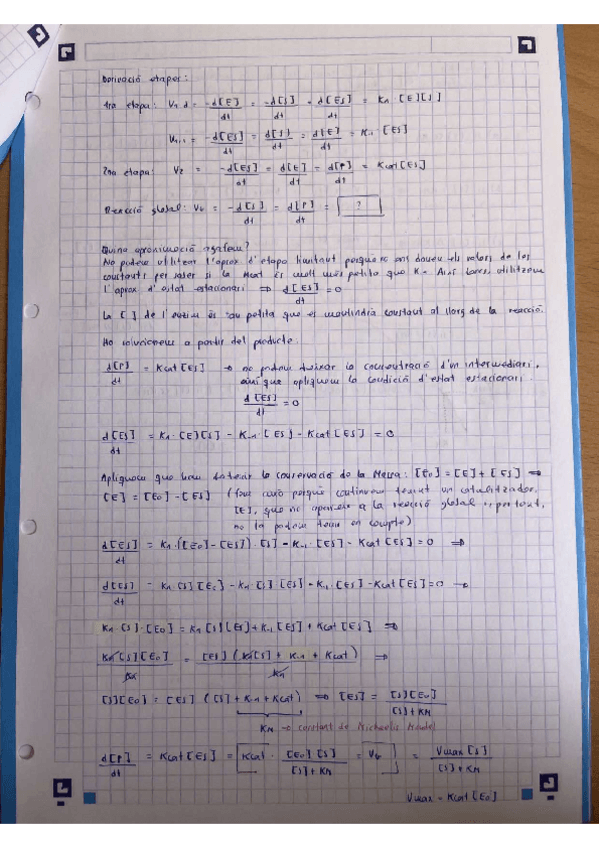 Derivació etapes:
1ra etapa: V1 d = -d[E]/dt = -d[S]/dt = d[ES]/dt = K1 · [E][S]
V-1 = -d[ES]/dt = d[S]/dt = d[E]/dt = K-1 · [ES]
2na etapa: V2 = -d[ES]/dt = d[E]/dt = d[P]/dt = Kcat[ES]
Reacció global: VG = -d[S]/dt = d[P]/dt = ?
Quina aproximació agafem?
No podem utilitzar l'aprox d'etapa limitant perquè no ens donen els valors de les
constants per saber si la Kcat és molt més petita que K-1. Així doncs, utilitzem
l'aprox d'estat estacionari ⇒ d[ES]/dt = 0
La [ ] de l'enzim és tan petita que es mantindrà constant al llarg de la reacció.
Ho solucionem a partir del producte.
d[P]/dt = Kcat[ES] → no podem deixar la concentració d'un intermediari,
així que apliquem la condició d'estat estacionari:
d[ES]/dt = 0
d[ES]/dt = K1 · [E][S] - K-1 · [ES] - Kcat[ES] = 0
Apliquem que hem d'aterar la conservació de la Massa: [E0] = [E] + [ES] ⇒
[E] = [E0] - [ES] (Fem això perquè continuem tenint un catalitzador,
[E], que no apareix a la reacció global i, per tant,
no la podem tenir en compte)
d[ES]/dt = K1 · ([E0] - [ES]) · [S] - K-1 · [ES] - Kcat[ES] = 0 ⇒
d[ES]/dt = K1 · [S][E0] - K1 · [S] · [ES] - K-1 · [ES] - Kcat[ES] = 0 ⇒
K1 · [S] · [E0] = K1[S][ES] + K-1[ES] + Kcat[ES] ⇒
K1[S][E0]/K1 = [ES] (K1[S] + K-1 + Kcat)/K1 ⇒
[S][E0] = [ES] ([S] + K-1 + Kcat) ⇒ [ES] = [S][E0]/[S] + KM
KM → constant de Michaelis Mendel
d[P]/dt = Kcat[ES] = Kcat · [E0][S]/[S] + KM = VG = Vmax[S]/[S] + KM
Vmax = Kcat[E0]